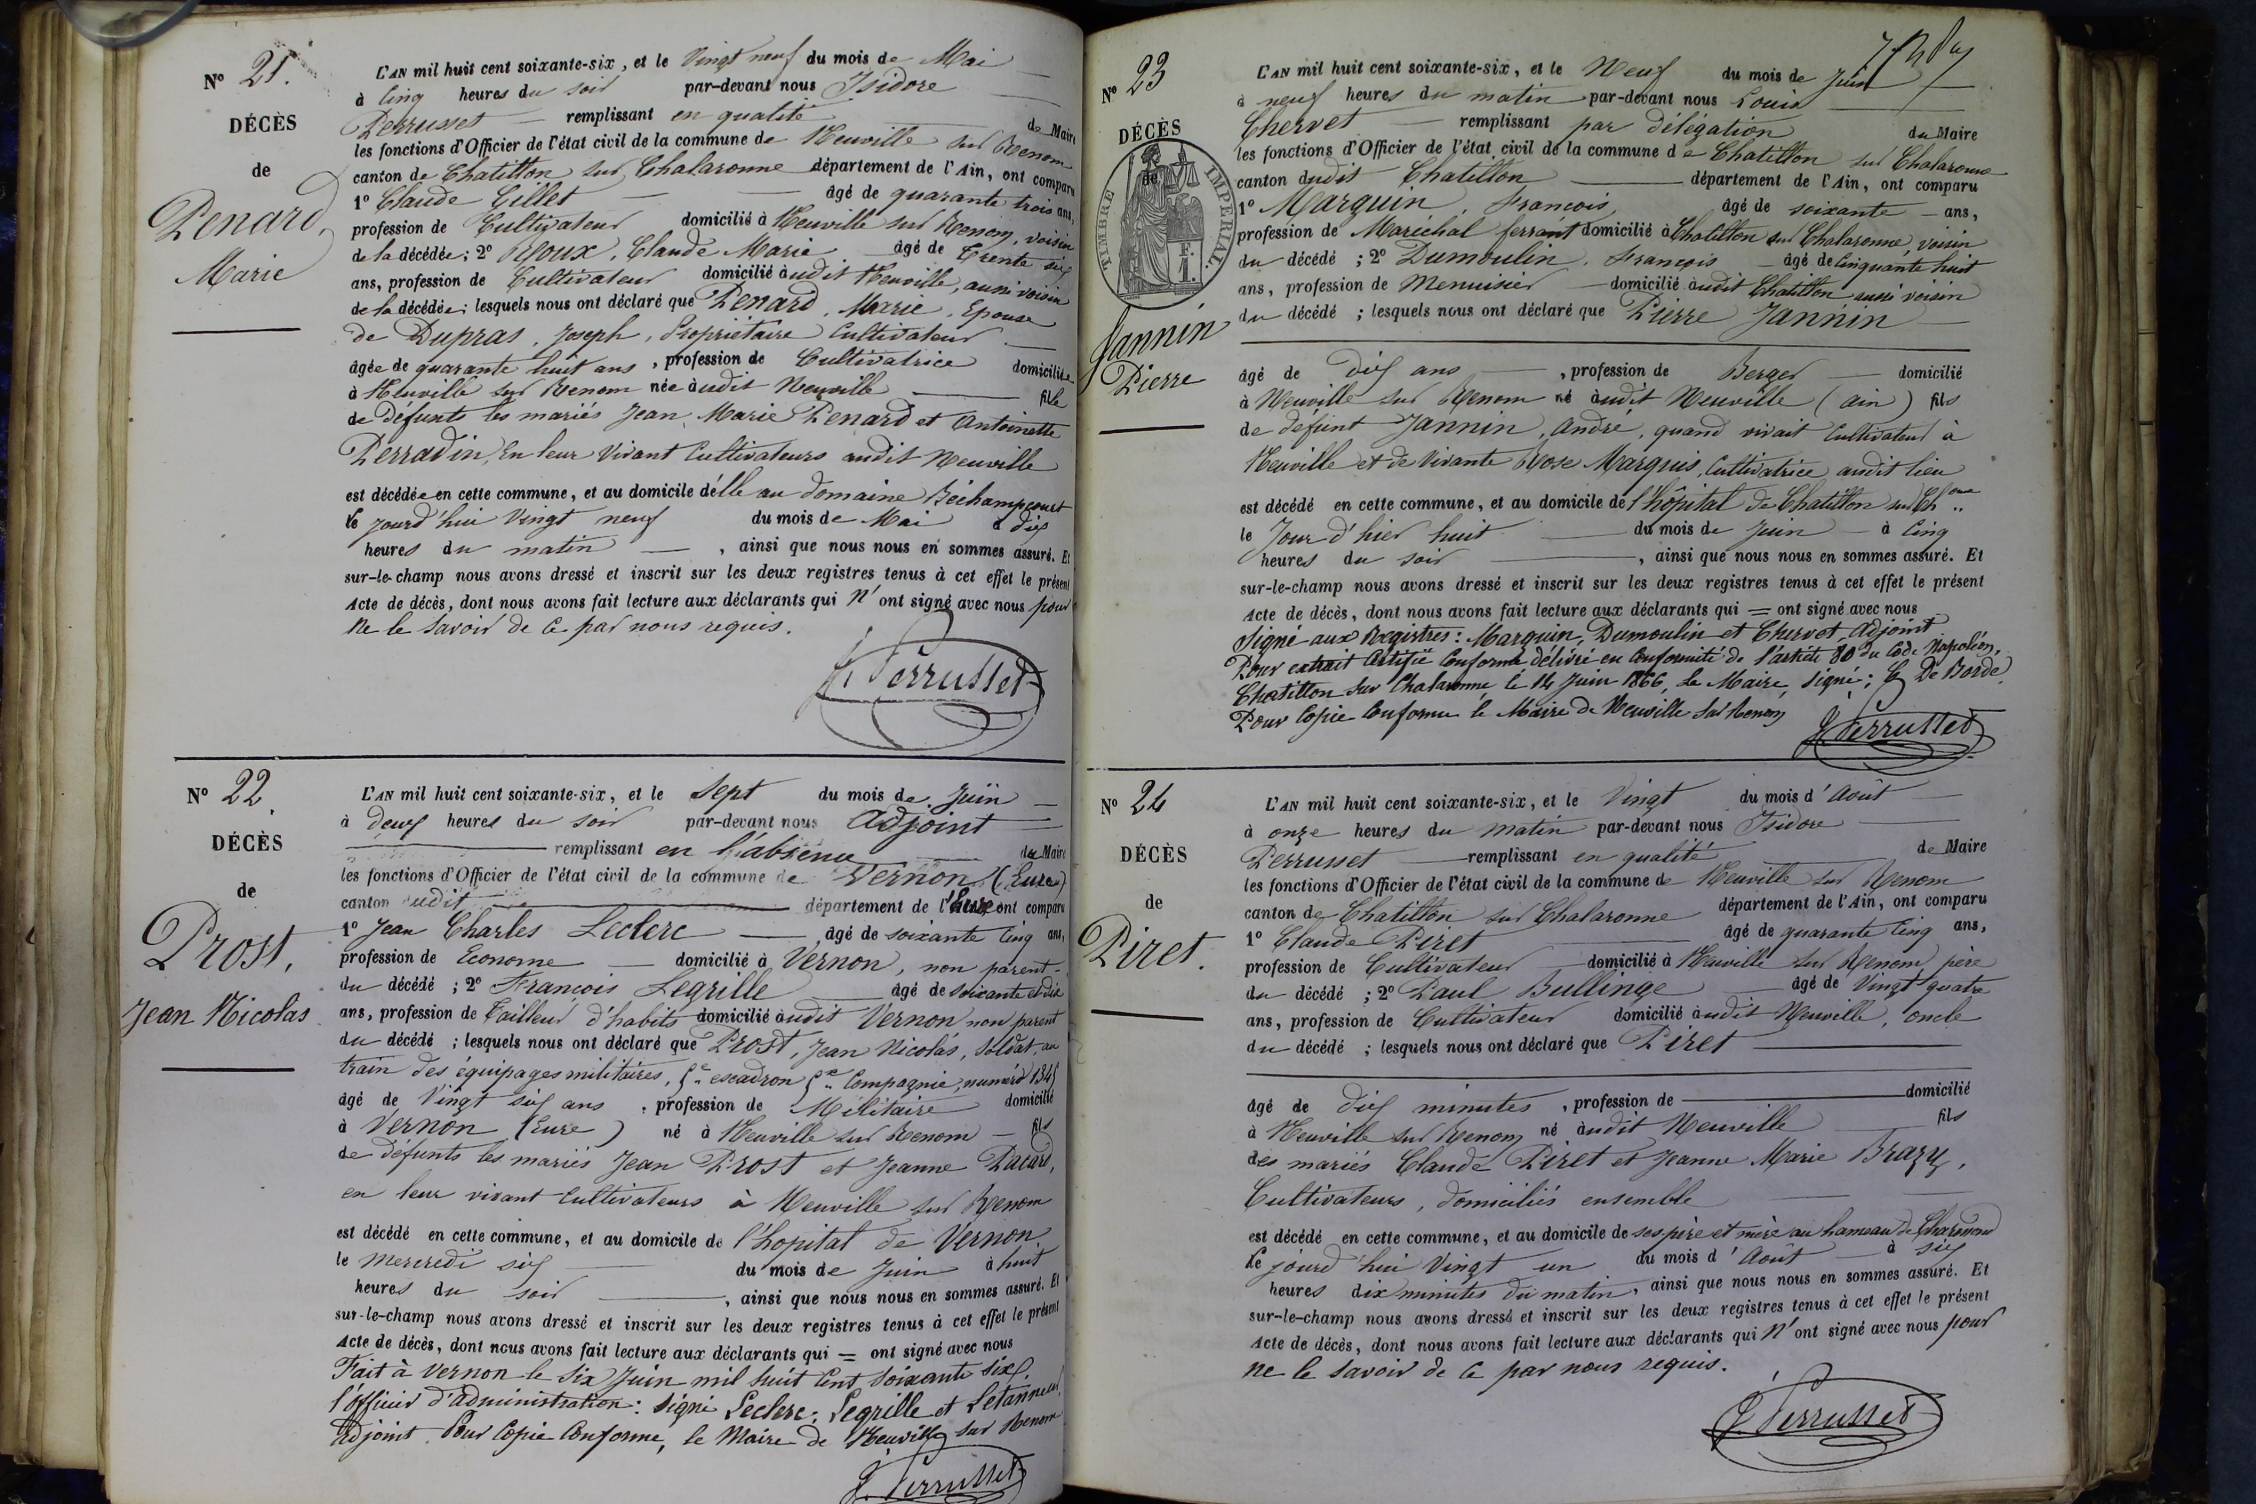 N° 21.
DÉCÈS
de
Penard,
Marie
L'AN mil huit cent soixante-six, et le Vingt neuf du mois de Mai
à Cinq heures du soir par-devant nous Isidore
Perrusset remplissant en qualité de Maire
les fonctions d'Officier de l'état civil de la commune de Neuville sur Renom
canton de Chatillon sur Chalaronne département de l'Ain, ont comparu
1° Claude Gillet âgé de quarante trois ans,
profession de Cultivateur domicilié à Neuville sur Renom, voisin
de la décédée; 2° Roux, Claude Marie âgé de Trente six
ans, profession de Cultivateur domicilié audit Neuville, aussi voisin
de la décédée; lesquels nous ont déclaré que Penard, Marie, Epouse
de Dupras, Joseph, Propriétaire Cultivateur
âgée de quarante huit ans, profession de Cultivatrice domiciliée
à Neuville sur Renom née audit Neuville fille
de défunts les mariés Jean Marie Penard et Antoinette
Perradin, En leur Vivant Cultivateurs audit Neuville
est décédée en cette commune, et au domicile d'elle au domaine Béchampcourt
le jourd'hui Vingt neuf du mois de Mai à dix
heures du matin, ainsi que nous nous en sommes assuré. Et
sur-le-champ nous avons dressé et inscrit sur les deux registres tenus à cet effet le présent
Acte de décès, dont nous avons fait lecture aux déclarants qui n'ont signé avec nous pour
ne le savoir de ce par nous requis.
J. Perrusset
N° 22.
DÉCÈS
de
Prost,
Jean Nicolas
L'AN mil huit cent soixante-six, et le Sept du mois de Juin
à deux heures du soir par-devant nous Adjoint
remplissant en l'absence du Maire
les fonctions d'Officier de l'état civil de la commune de Vernon (Eure)
canton dudit département de l'Eure ont comparu
1° Jean Charles Leclerc âgé de soixante cinq ans,
profession de Econome domicilié à Vernon, non parent
du décédé; 2° François Legrille âgé de soixante et dix
ans, profession de Tailleur d'habits domicilié audit Vernon non parent
du décédé; lesquels nous ont déclaré que Prost, Jean Nicolas, Soldat, au
train des équipages militaires, 5e escadron 5me Compagnie, numéro 1345
âgé de Vingt six ans, profession de Militaire domicilié
à Vernon (Eure) né à Neuville sur Renom fils
de défunts les mariés Jean Prost et Jeanne Pacard,
en leur vivant Cultivateurs à Neuville sur Renom
est décédé en cette commune, et au domicile de l'hopital de Vernon
le mercredi six du mois de Juin à huit
heures du soir, ainsi que nous nous en sommes assuré. Et
sur-le-champ nous avons dressé et inscrit sur les deux registres tenus à cet effet le présent
Acte de décès, dont nous avons fait lecture aux déclarants qui = ont signé avec nous
Fait à Vernon le Six Juin mil huit Cent Soixante Six,
l'officier d'administration: signé Leclerc, Legrille et Letanneur
adjoint Pour Copie Conforme, le Maire de Neuville sur Renom
J. Perrusset
N° 23
DÉCÈS
de
TIMBRE IMPERIAL.
F.
1
Jannin
Pierre
L'AN mil huit cent soixante-six, et le Neuf du mois de Juin
à neuf heures du matin par-devant nous Louis
Chervet remplissant par délégation du Maire
les fonctions d'Officier de l'état civil de la commune de Chatillon sur Chalaronne
canton dudit Chatillon département de l'Ain, ont comparu
1° Marguin, François, âgé de soixante ans,
profession de Maréchal ferrant domicilié à Chatillon sur Chalaronne, voisin
du décédé; 2° Dumoulin, François âgé de Cinquante huit
ans, profession de Menuisier domicilié audit Chatillon aussi voisin
du décédé; lesquels nous ont déclaré que Pierre Jannin
âgé de dix ans, profession de Berger domicilié
à Neuville sur Renom né audit Neuville (ain) fils
de défunt Jannin, André, quand vivait Cultivateur à
Neuville et de Vivante Rose Marguis, Cultivatrice audit lieu
est décédé en cette commune, et au domicile de l'hôpital de Chatillon sur Chonne
le Jour d'hier huit du mois de Juin à Cinq
heures du soir, ainsi que nous nous en sommes assuré. Et
sur-le-champ nous avons dressé et inscrit sur les deux registres tenus à cet effet le présent
Acte de décès, dont nous avons fait lecture aux déclarants qui = ont signé avec nous
Signé aux Registres: Marguin, Dumoulin et Chervet, adjoint
Pour extrait Certifié Conforme délivré en Conformité de l'article 80 du Code Napoléon,
Chatillon sur Chalaronne le 14 Juin 1866, Le Maire, signé: C. De Borde
Pour Copie Conforme le Maire de Neuville sur Renom
J. Perrusset
N° 24
DÉCÈS
de
Piret.
L'AN mil huit cent soixante-six, et le Vingt du mois d'Août
à onze heures du matin par-devant nous Isidore
Perrusset remplissant en qualité de Maire
les fonctions d'Officier de l'état civil de la commune de Neuville sur Renom
canton de Chatillon sur Chalaronne département de l'Ain, ont comparu
1° Claude Piret âgé de quarante Cinq ans,
profession de Cultivateur domicilié à Neuville sur Renom, père
du décédé; 2° Paul Bullinge âgé de Vingt quatre
ans, profession de Cultivateur domicilié audit Neuville, oncle
du décédé; lesquels nous ont déclaré que Piret
âgé de dix minutes, profession de domicilié
à Neuville sur Renom né audit Neuville fils
des mariés Claude Piret et Jeanne Marie Brazy,
Cultivateurs, domiciliés ensemble
est décédé en cette commune, et au domicile de ses père et mère au hameau de Charemond
le jourd'hui Vingt un du mois d'Août à six
heures dix minutes du matin, ainsi que nous nous en sommes assuré. Et
sur-le-champ nous avons dressé et inscrit sur les deux registres tenus à cet effet le présent
Acte de décès, dont nous avons fait lecture aux déclarants qui n'ont signé avec nous pour
ne le savoir de ce par nous requis.
J. Perrusset